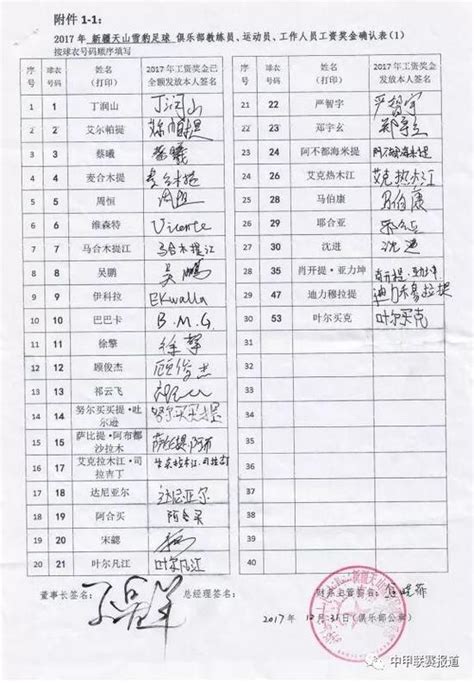 附件 1-1：
2017 年 新疆天山雪豹足球 俱乐部教练员、运动员、工作人员工资奖金确认表（1）
按球衣号码顺序填写
序号 球衣号码 姓名（打印） 2017 年工资奖金已全额发放本人签名 序号 球衣号码 姓名（打印） 2017 年工资奖金已全额发放本人签名
1 1 丁润山 丁润山 21 22 严智宇 严智宇
2 2 艾尔帕提 22 23 郑宇玄
3 3 蔡曦 蔡曦 23 24 阿不都海米提 阿不都海米提
4 4 麦合木提 麦合木提 24 26 艾克热木江 艾克热木江
5 5 周恒 周恒 25 28 马伯康 马伯康
6 6 维森特 Vicente 26 29 耶合亚
7 7 马合木提江 马合木提江 27 30 沈进 沈进
8 8 吴鹏 吴鹏 28 35 肖开提·亚力坤 肖开提·亚力坤
9 9 伊科拉 EKwalla 29 47 迪力穆拉提 迪力木拉提
10 10 巴巴卡 B.M.G. 30 53 叶尔买克 叶尔买克
11 11 徐擎 徐擎
12 12 顾俊杰 顾俊杰
13 13 祁云飞
14 14 努尔买买提·吐尔逊 努尔买买提
15 15 萨比提·阿布都沙拉木
16 17 艾克拉木江·司拉吉丁
17 18 达尼亚尔 达尼亚尔
18 19 阿合买 阿合买
19 20 宋勰
20 21 叶尔凡江 叶尔凡江
董事长签名： 总经理签名： 财务主管签名：
2017 年 12 月 31 日（俱乐部公章）
新疆天山
中甲联赛报道